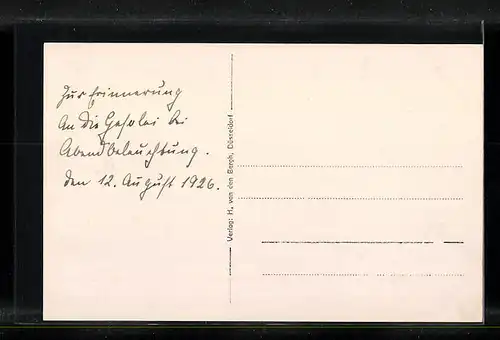 Zur Erinnerung
an die Gesolei bei
Abendbeleuchtung.
den 12. August 1926.
Verlag: H. van den Bergh, Düsseldorf